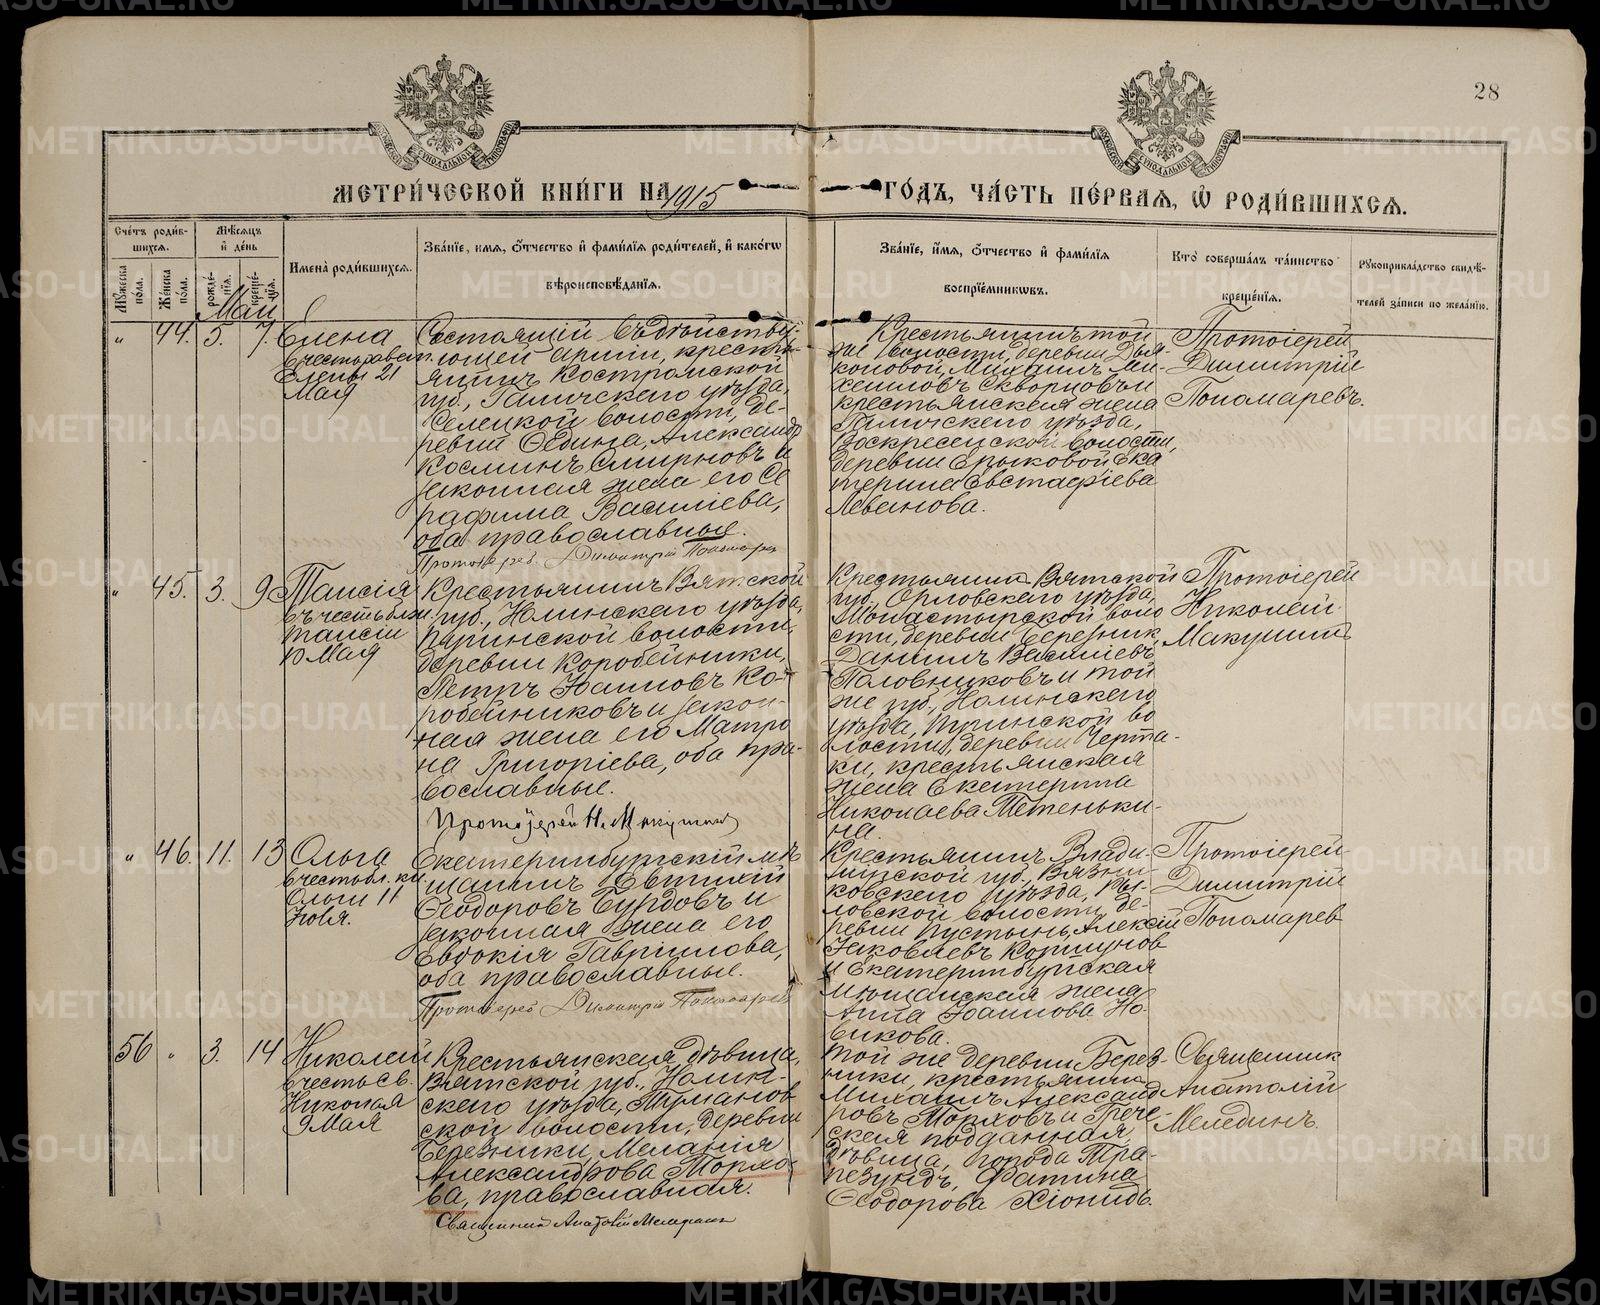 28
МЕТРИ́ЧЕСКОЙ КНИ́ГИ НА 1915 ГО́ДЪ, ЧА́СТЬ ПЕ́РВАЯ, Ѡ РОДИ́ВШИХСЯ.
Сче́тъ роди́в-
шихся.
Му́жеска по́ла.
Же́нска по́ла.
Мѣ́сяцъ и де́нь
рожде́-
нїя.
креще́-
нїя.
Имена̀ роди́вшихся.
Зва́нїе, и́мя, о́тчество и фами́лїя роди́телей, и како́гѡ
вѣроисповѣ́данїя.
Зва́нїе, и́мя, о́тчество и фами́лїя
воспрїе́мникѡвъ.
Кто̀ соверша́лъ та́инство
креще́нїя.
Рꙋкоприкла́дство свидѣ́-
телей за́писи по жела́нїю.
Май
" 44. 5. 7.
Елена
Елены 21
Мая
Состоящій въ дѣйству-
ющей арміи, кресть-
янинъ Костромской
губ., Галичского уѣзда,
Селецкой волости, де-
ревни Ѳедина, Александръ
Косминъ Смирновъ и
законная жена его Се
рафима Василіева,
оба православные.
Протоіерей Димитрій Пономарев
Крестьянинъ той
же волости, деревни Дья-
коновой, Михаилъ Ми-
хеиловъ Скворцовъ и
крестьянская жена
Галичского уѣзда,
Воскресенской волости,
деревни Ерыковой Ека
терина Евстафіева
Леванова.
Протоіерей
Димитрій
Пономаревъ.
" 45. 3. 9
Таисія
въ честь блж.
Таисіи
10 Мая
Крестьянинъ Вятской
губ., Нолинскаго уѣзда,
деревни Коробейники,
Петръ Іоанновъ Ко-
робейниковъ и закон-
ная жена его Матро
на Григоріева, оба пра-
вославные.
Протоіерей Н. Макушинъ
Крестьянинъ Вятской
губ. Орловского уѣзда,
Монастырской воло
сти, деревни Березник,
Даніилъ Василіевъ
Половниковъ и той
же губ., Нолинскаго
уѣзда,
волости, деревни Черта-
ки, крестьянская
жена Екатерина
Николаева Тетеньки-
на.
Протоіерей
Николай
Макушинъ
" 46. 11. 13
Ольга
в честь бл. кн.
Ольги 11
Іюля.
Екатеринбургскій мѣ
щанинъ Евтихій
Ѳеодоровъ Бурдовъ и
законная жена его
Евдокія Гавріилова,
оба православные.
Протоіерей Димитрій Пономарев
Крестьянинъ Влади-
мірской губ., Вязни-
ковского уѣзда, Ры-
ловской волости, де-
ревни Пустынь, Алексій
Іаковлевъ Коршунов
и Екатеринбургская
мѣщанская жена
Анна Іоаннова Но-
викова.
Протоіерей
Димитрій
Пономарев
56 " 3. 14
Николай
в честь Св.
Николая
9 Мая
Крестьянская дѣвица,
Вятской губ., Нолин-
скаго уѣзда, Туманов
ской волости, деревни
Березники, Меланія
Александрова Торхо-
ва, православная.
Священник Анатолій Меледин
Той же деревни Берез-
ники, крестьянинъ
Михаилъ Александ
ровъ Торховъ и Грече-
ская подданная,
дѣвица, города Тра-
пезундъ, Фатина
Ѳеодорова Хіонидъ.
Священник
Анатолій
Мелединъ.
METRIKI.GASO-URAL.RU